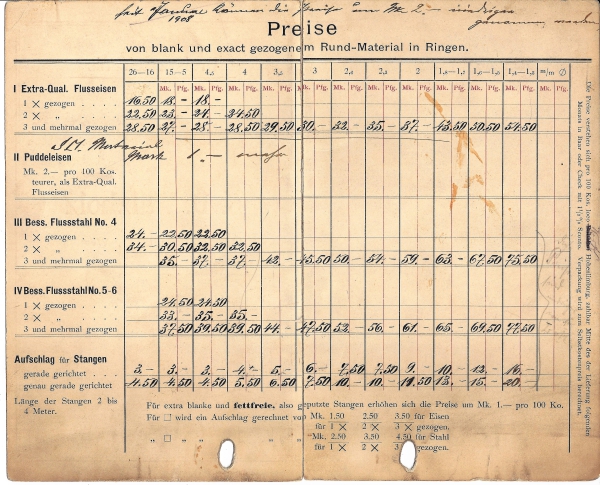 seit Januar können die Preise um Mk. 2.– niedriger
1908 genommen werden
Preise
von blank und exact gezogenem Rund-Material in Ringen.
26–16 15–5 4,5 4 3,5 3 2,8 2,5 2 m/m Ø
Mk. Pfg. Mk. Pfg. Mk. Pfg. Mk. Pfg. Mk. Pfg. Mk. Pfg. Mk. Pfg. Mk. Pfg. Mk. Pfg. Mk. Pfg. Mk. Pfg.
I Extra-Qual. Flusseisen
1 × gezogen . . . . 16.50 18.– 18.–
2 × „ . . . . 22.50 23.– 24.– 24.50
3 und mehrmal gezogen 28.50 27.– 28.– 28.50 29.50 30.– 32.– 35.– 37.– 43.50 50.50 54.50
Mark 1.– mehr
II Puddeleisen
Mk. 2.— pro 100 Kos.
teurer, als Extra-Qual.
Flusseisen
III Bess. Flussstahl No. 4
1 × gezogen . . . . 24.– 22.50 22.50
2 × „ . . . . 34.– 30.50 32.50 32.50
3 und mehrmal gezogen 35.– 37.– 37.– 42.– 45.50 50.– 54.– 59.– 63.– 67.50 75.50
IV Bess. Flussstahl No. 5-6
1 × gezogen . . . . 24.50 24.50
2 × „ . . . . 33.– 35.– 35.–
3 und mehrmal gezogen 37.50 39.50 39.50 44.– 47.50 52.– 56.– 61.– 65.– 69.50 77.50
Aufschlag für Stangen
gerade gerichtet . . . 3.– 3.– 3.– 4.– 5.– 6.– 7.50 7.50 9.– 10.– 12.– 16.–
genau gerade gerichtet 4.50 4.50 4.50 5.50 6.50 7.50 10.– 10.– 11.50 13.– 15.– 20.–
Länge der Stangen 2 bis
4 Meter.
Für extra blanke und fettfreie, also geputzte Stangen erhöhen sich die Preise um Mk. 1.— pro 100 Ko.
Für □ wird ein Aufschlag gerechnet von Mk. 1.50 2.50 3.50 für Eisen
für 1 × 2 × 3 × gezogen.
„ □ „ „ „ Mk. 2.50 3.50 4.50 für Stahl
für 1 × 2 × 3 × gezogen.
Die Preise verstehen sich pro 100 Kos. loco Hohenlimburg, zahlbar Mitte des der Lieferung folgenden
Monats in Baar oder Check mit 1½% Sconto. Verpackung wird zum Selbstkostenpreis berechnet.